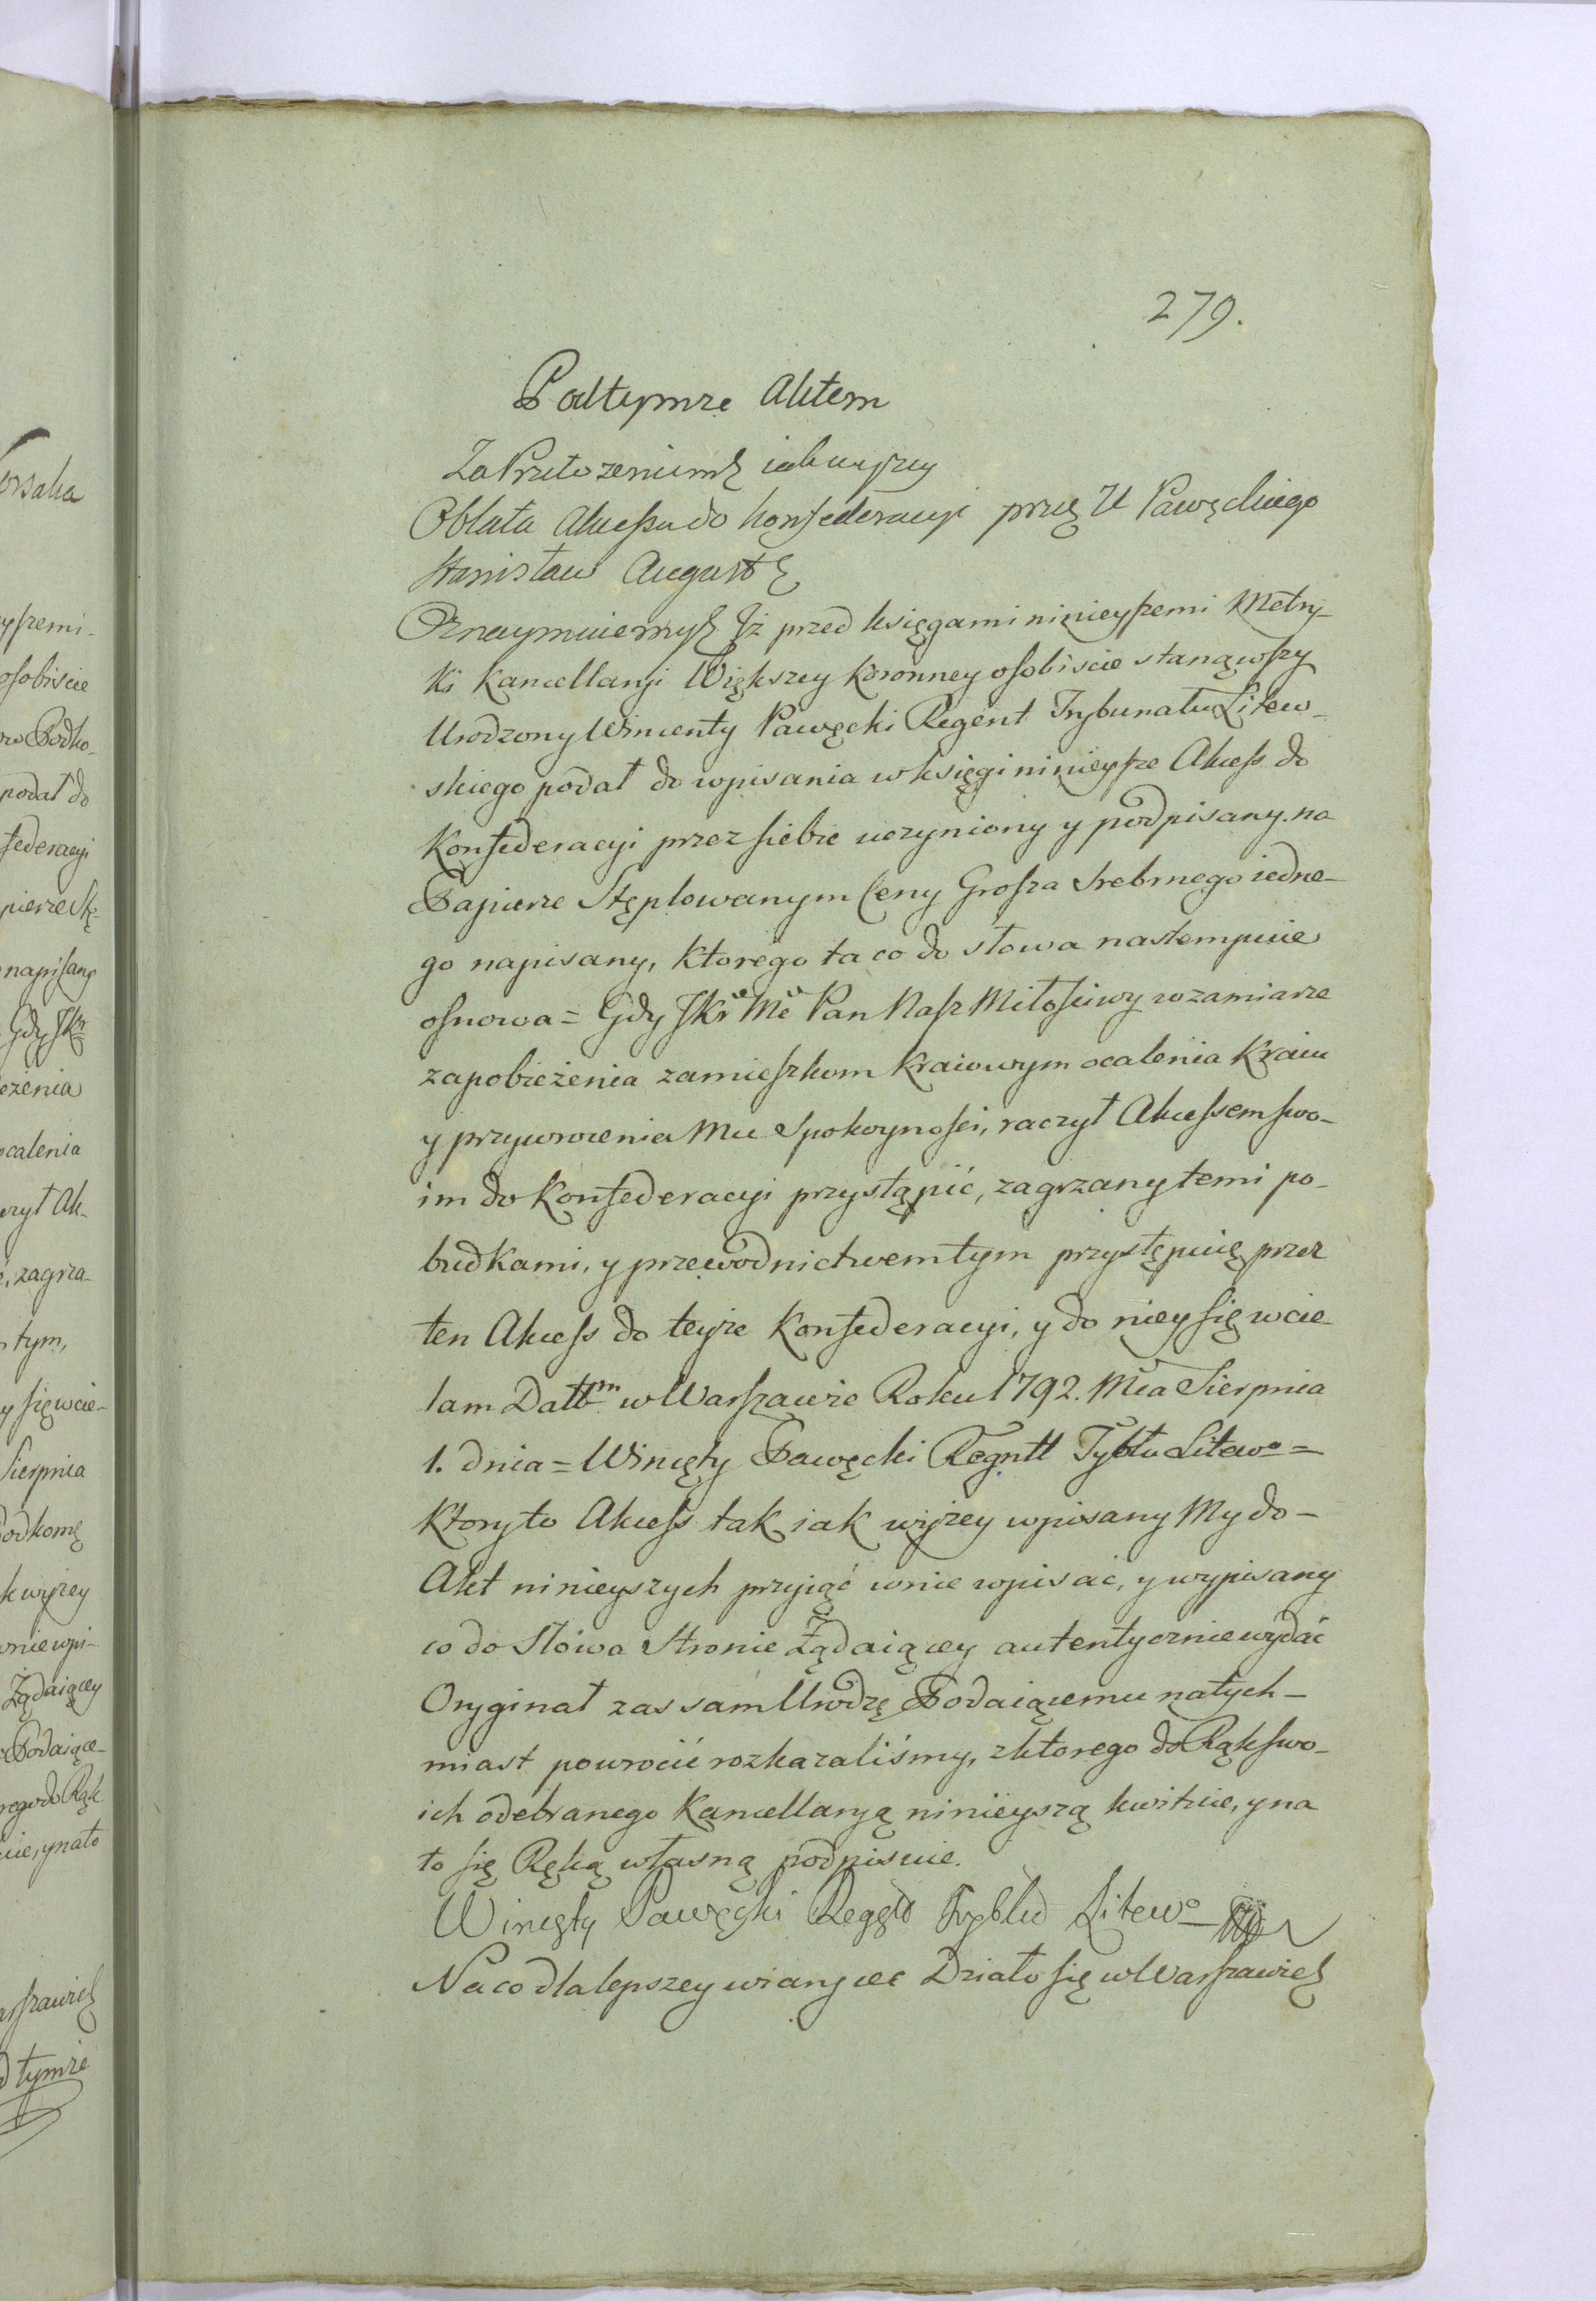 279.
Pod tymże Aktem
Za Przełożeniem& iak wyżey
Oblata Akcessu do Konfederacyi przę U Pawęckiego
Stanisław August&
Oznaymuiemy& Iż przed księgami ninieyszemi Metry-
ki Kancellaryi Większey Koronney osobiscie stanąwszy
Urodzony Wincenty Pawęcki Regent Trybunału Litew-
skiego podał do wpisania w księgi ninieysze Akcess do
Konfederacyi przez siebie uczyniony y podpisany na
Papierze Stęplowanym Ceny Grosza Srebrnego iedne-
go napisany, ktorego ta co do słowa nastempuie
osnowa = Gdy JKr Mć Pan Nasz Miłosciwy w zamiarze
zapobieżenia zamieszkom kraiowym ocalenia Kraiu
y przywrocenia Mu Spokoynosci, raczył Akcessem swo-
im do Konfederacyi przystąpić, zagrzany temi po-
budkami, y przewodnictwem tym przystępuię przez
ten Akcess do teyże Konfederacyi, y do niey się wcie-
lam Dattm w Warszawie Roku 1792. Mca Sierpnia
1. dnia = Wincęty Pawęcki Regntt Tybłu Litewo =
Ktory to Akcess tak iak wyżey wpisany My do-
Akt ninieyszych przyiąć w nie wpisać, y wypisany
co do Słowa Stronie Żądaiącey autentycznie wydać
Oryginał zas sam Urodzę Podaiącemu natych-
miast powrocić rozkazaliśmy, z ktorego do Rąk swo-
ich odebranego Kancellaryą ninieyszą kwituie, y na
to się Ręką własną podpisuie.
Wincęty Pawęcki Regęt Trybłu Litewo
Na co dla lepszey wiary etc Działo się w Warszawie&